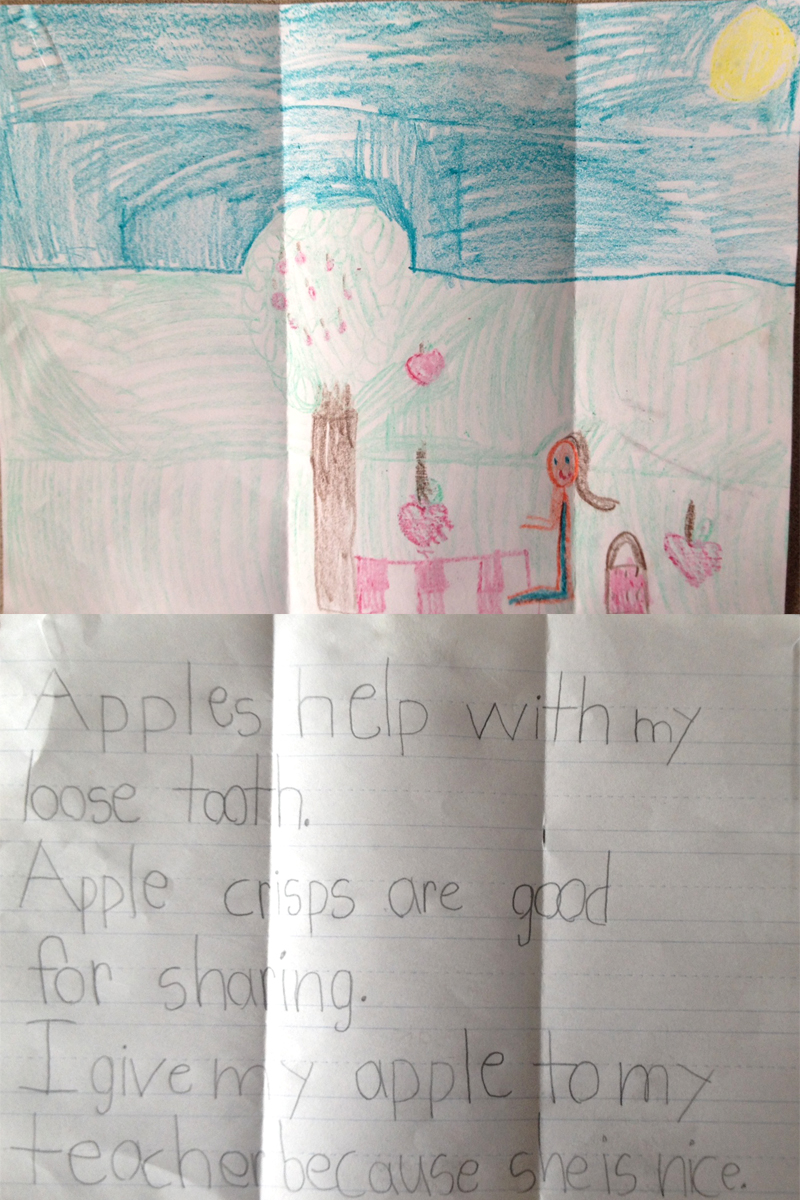 Apples help with my
loose tooth.
Apple crisps are good
for sharing.
I give my apple to my
teacher because she is nice.